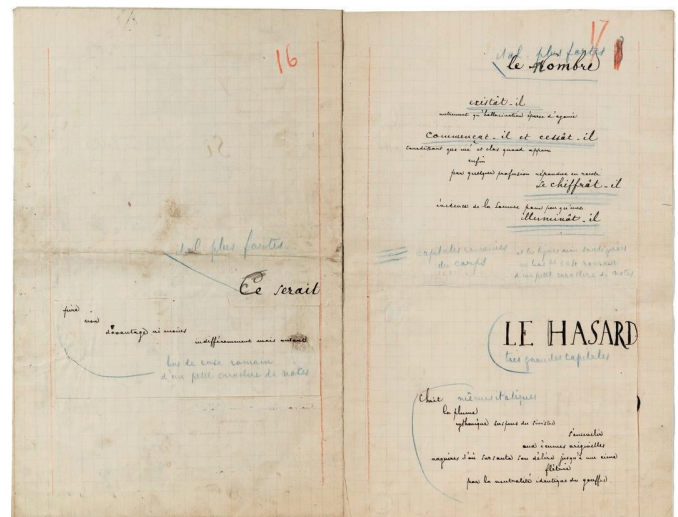 16
ital. plus fortes
Ce serait
pire
non
davantage ni moins
indifféremment mais autant
bas de casse romain
d'un petit caractère de notes
17
ital. plus fortes
le Nombre
existât-il
autrement qu'hallucination éparse d'agonie
commençât-il et cessât-il
sourdant que nié et clos quand apparu
enfin
par quelque profusion répandue en rareté
se chiffrât-il
évidence de la somme pour peu qu'une
illuminât-il
capitales romaines et les lignes non soulignées
du corps en bas de casse romain
d'un petit caractère de notes
LE HASARD
très grandes capitales
Choit mêmes italiques
la plume
rythmique suspens du sinistre
s'ensevelir
aux écumes originelles
naguères d'où sursauta son délire jusqu'à une cime
flétrie
par la neutralité identique du gouffre